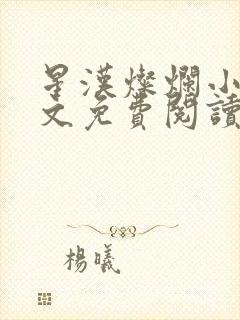 星漢燦爛小
文免費閱讀
楊曦